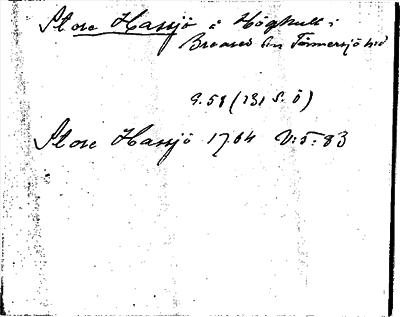 Store Hassjö i Höghult i
Breared sn Tönnersjö hd
9.58 (131 S. Ö)
Store Hassjö 1704 V:5:83